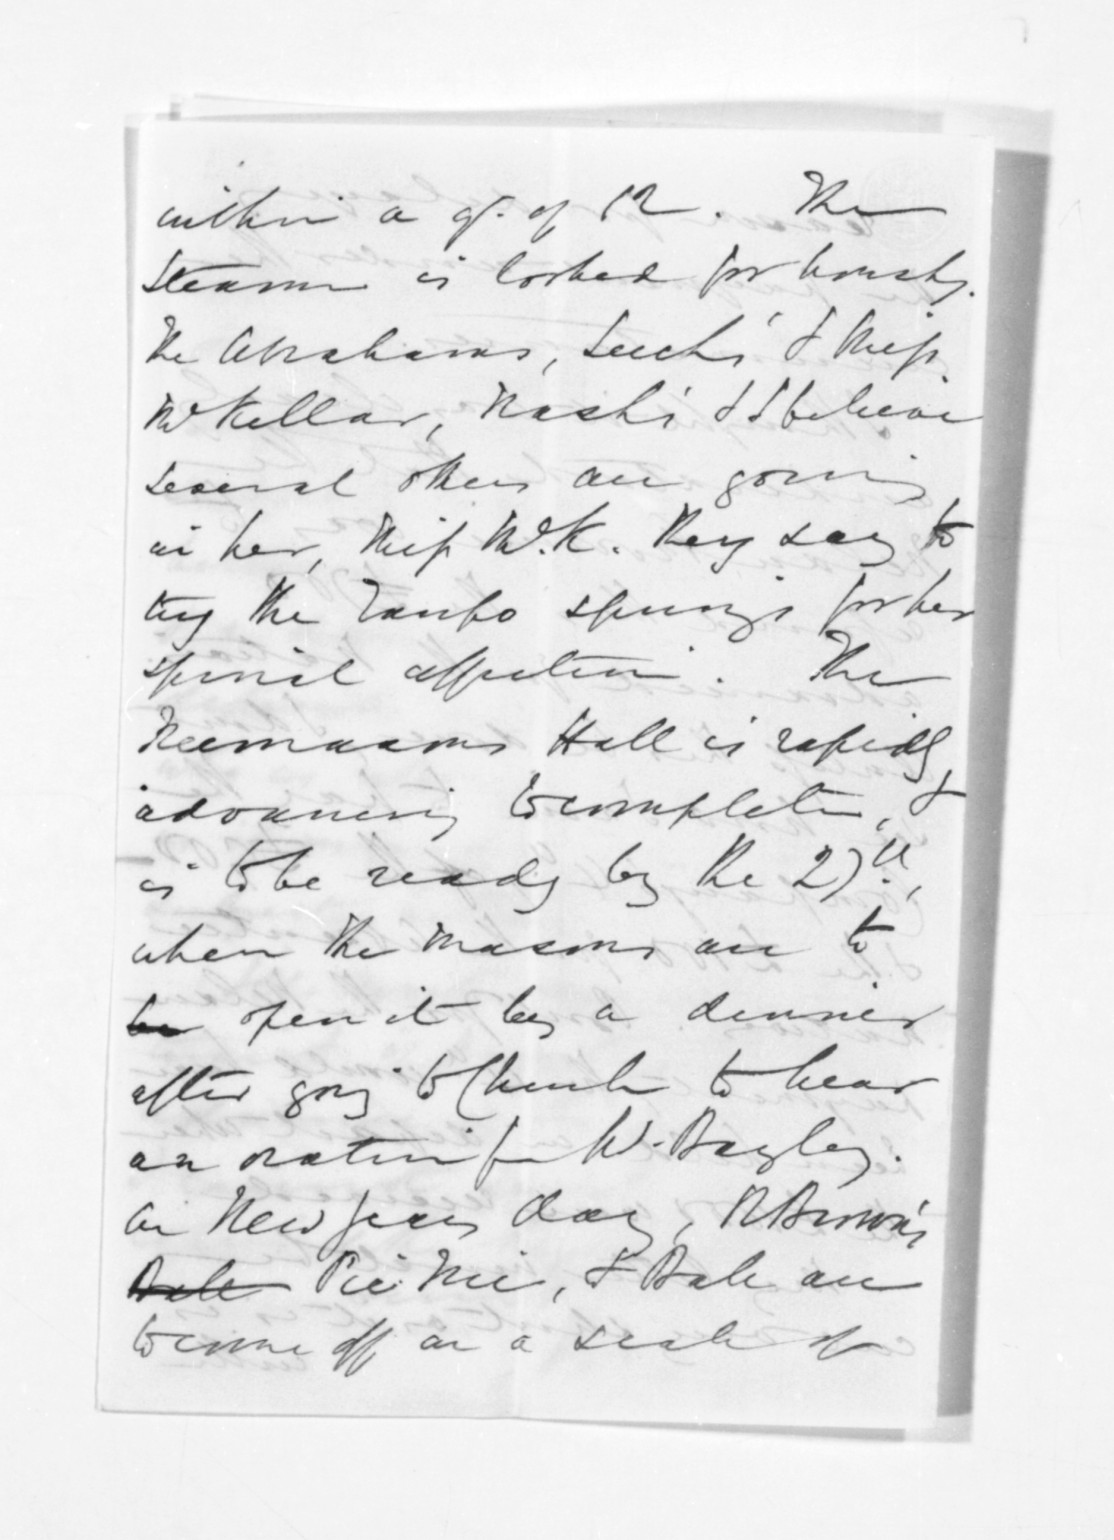 within a qr. of 12. The
Steamer is looked for hourly.
The Abrahams, Leech's & Miss
McKellar, Nash's & I believe
several others are going
in her, Miss McK. they say to
try the Taupo springs for her
spinal affection. The
Freemasons Hall is rapidly
advancing to completion, &
is to be ready by the 27th,
when the masons are to
be open it by a dinner
after going to Church to hear
an oration fm W. Bagley.
On New Years day, R Brown's
Bale Pic Nic, & Bale are
to come off on a scale of